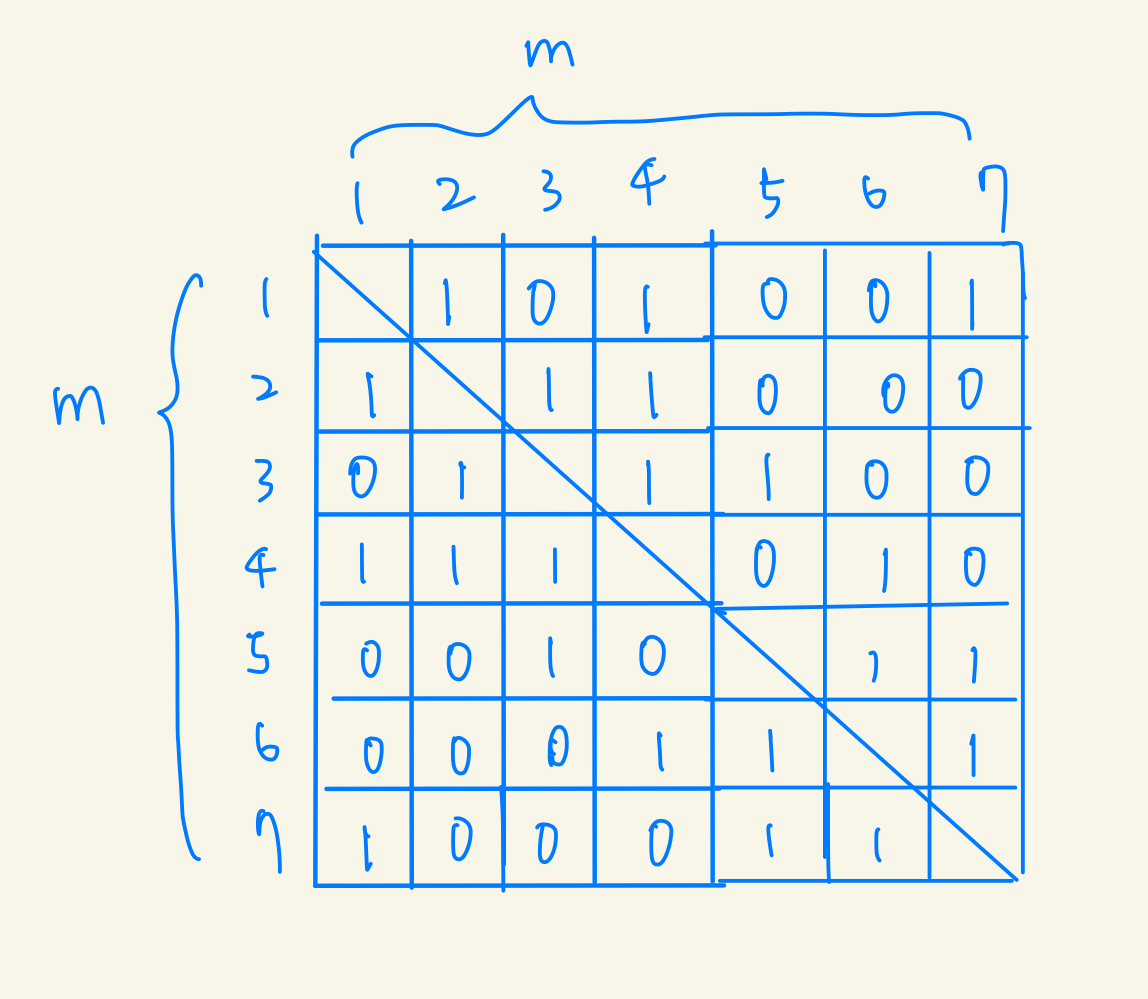 m
1 2 3 4 5 6 7
m
1 1 0 1 0 0 1
2 1 1 1 0 0 0
3 0 1 1 1 0 0
4 1 1 1 0 1 0
5 0 0 1 0 1 1
6 0 0 0 1 1 1
7 1 0 0 0 1 1